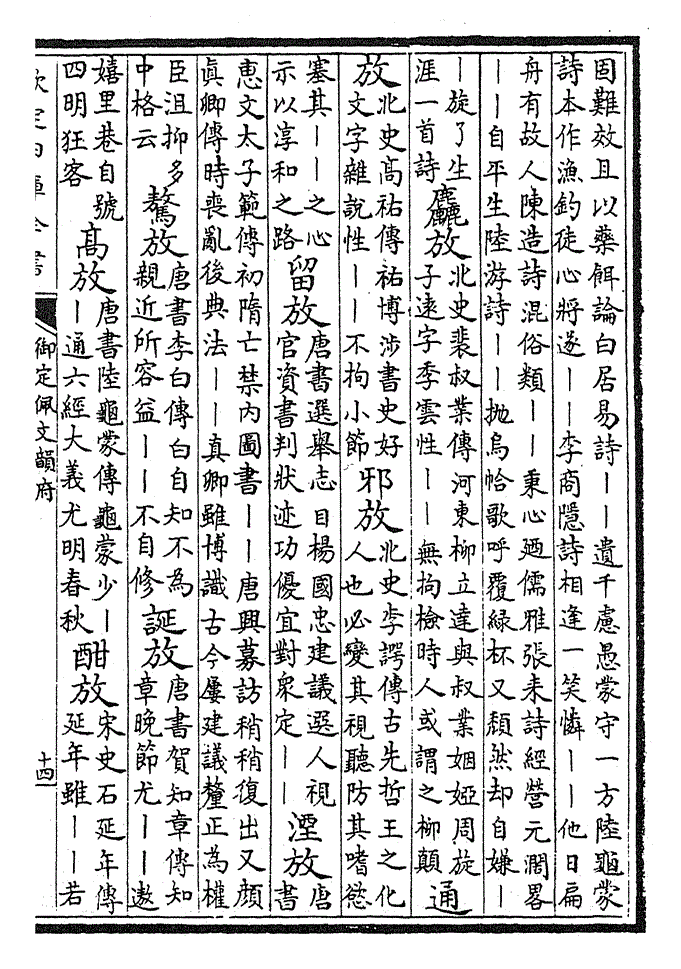 固難效且以藥餌論白居易詩——遺千慮愚蒙守一方陸龜蒙
詩本作漁釣徒心將遂——李商隱詩相逢一笑憐——他日扁
舟有故人陳造詩混俗類——秉心廼儒雅張耒詩經營元濶畧
——自平生陸游詩——拋烏帢歌呼覆綠杯又頽然却自嫌—
—旋了生
涯一首詩
麤放
北史裴叔業傳河東柳立達與叔業姻婭周旋
子遠字季雲性——無拘檢時人或謂之柳顛
通
放
北史高祐傳祐博涉書史好
文字雜說性——不拘小節
邪放
北史李諤傳古先哲王之化
人也必變其視聽防其嗜慾
塞其——之心
示以淳和之路
留放
唐書選舉志目楊國忠建議選人視
官資書判狀迹功優宜對衆定——
湮放
唐
書
惠文太子範傳初隋亡禁內圖書——唐興募訪稍稍復出又顔
眞卿傳時喪亂後典法——真卿雖博識古今屢建議釐正為權
臣沮抑多
中格云
驁放
唐書李白傳白自知不為
親近所容益——不自修
誕放
唐書賀知章傳知
章晚節尤——遨
嬉里巷自號
四明狂客
高放
唐書陸龜蒙傳龜蒙少—
—通六經大義尤明春秋
酣放
宋史石延年傳
延年雖——若
欽定四庫全書
御定佩文韻府
十四